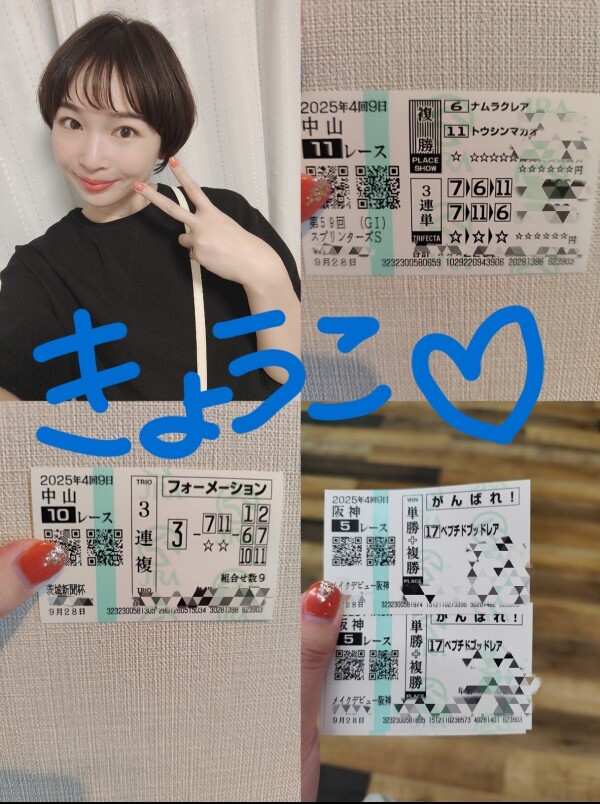 2025年4回9日
中山
11レース
複勝
PLACE
SHOW
6 ナムラクレア
11 トウシンマカオ
☆ ☆☆☆☆☆☆
☆☆☆☆☆☆円
3連単
TRIFECTA
7 6 11
7 11 6
☆ ☆ ☆ ☆☆☆☆☆☆円
第59回 (GⅠ)
スプリンターズS
9月28日
3232300580659 1029220943906 20281396 623903
きょうこ♡
2025年4回9日
中山
10レース
TRIO
3連複
TRIO
フォーメーション
3 - 7 11 - 1 2
☆☆ 6 7
10 11
組合せ数9
茨城新聞杯
9月28日
2025年4回9日
阪神
5レース
WIN
単勝+複勝
PLACE
がんばれ!
17 ペプチドブッドレア
メイクデビュー阪神
月28日
阪神
5レース
単勝+複勝
PLACE
がんばれ!
17 ペプチドブッドレア
メイクデビュー阪神
9月28日